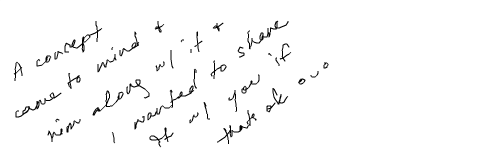 A concept
came to mind +
him along w/ it +
I wanted to share
it w/ you if
thats ok ...